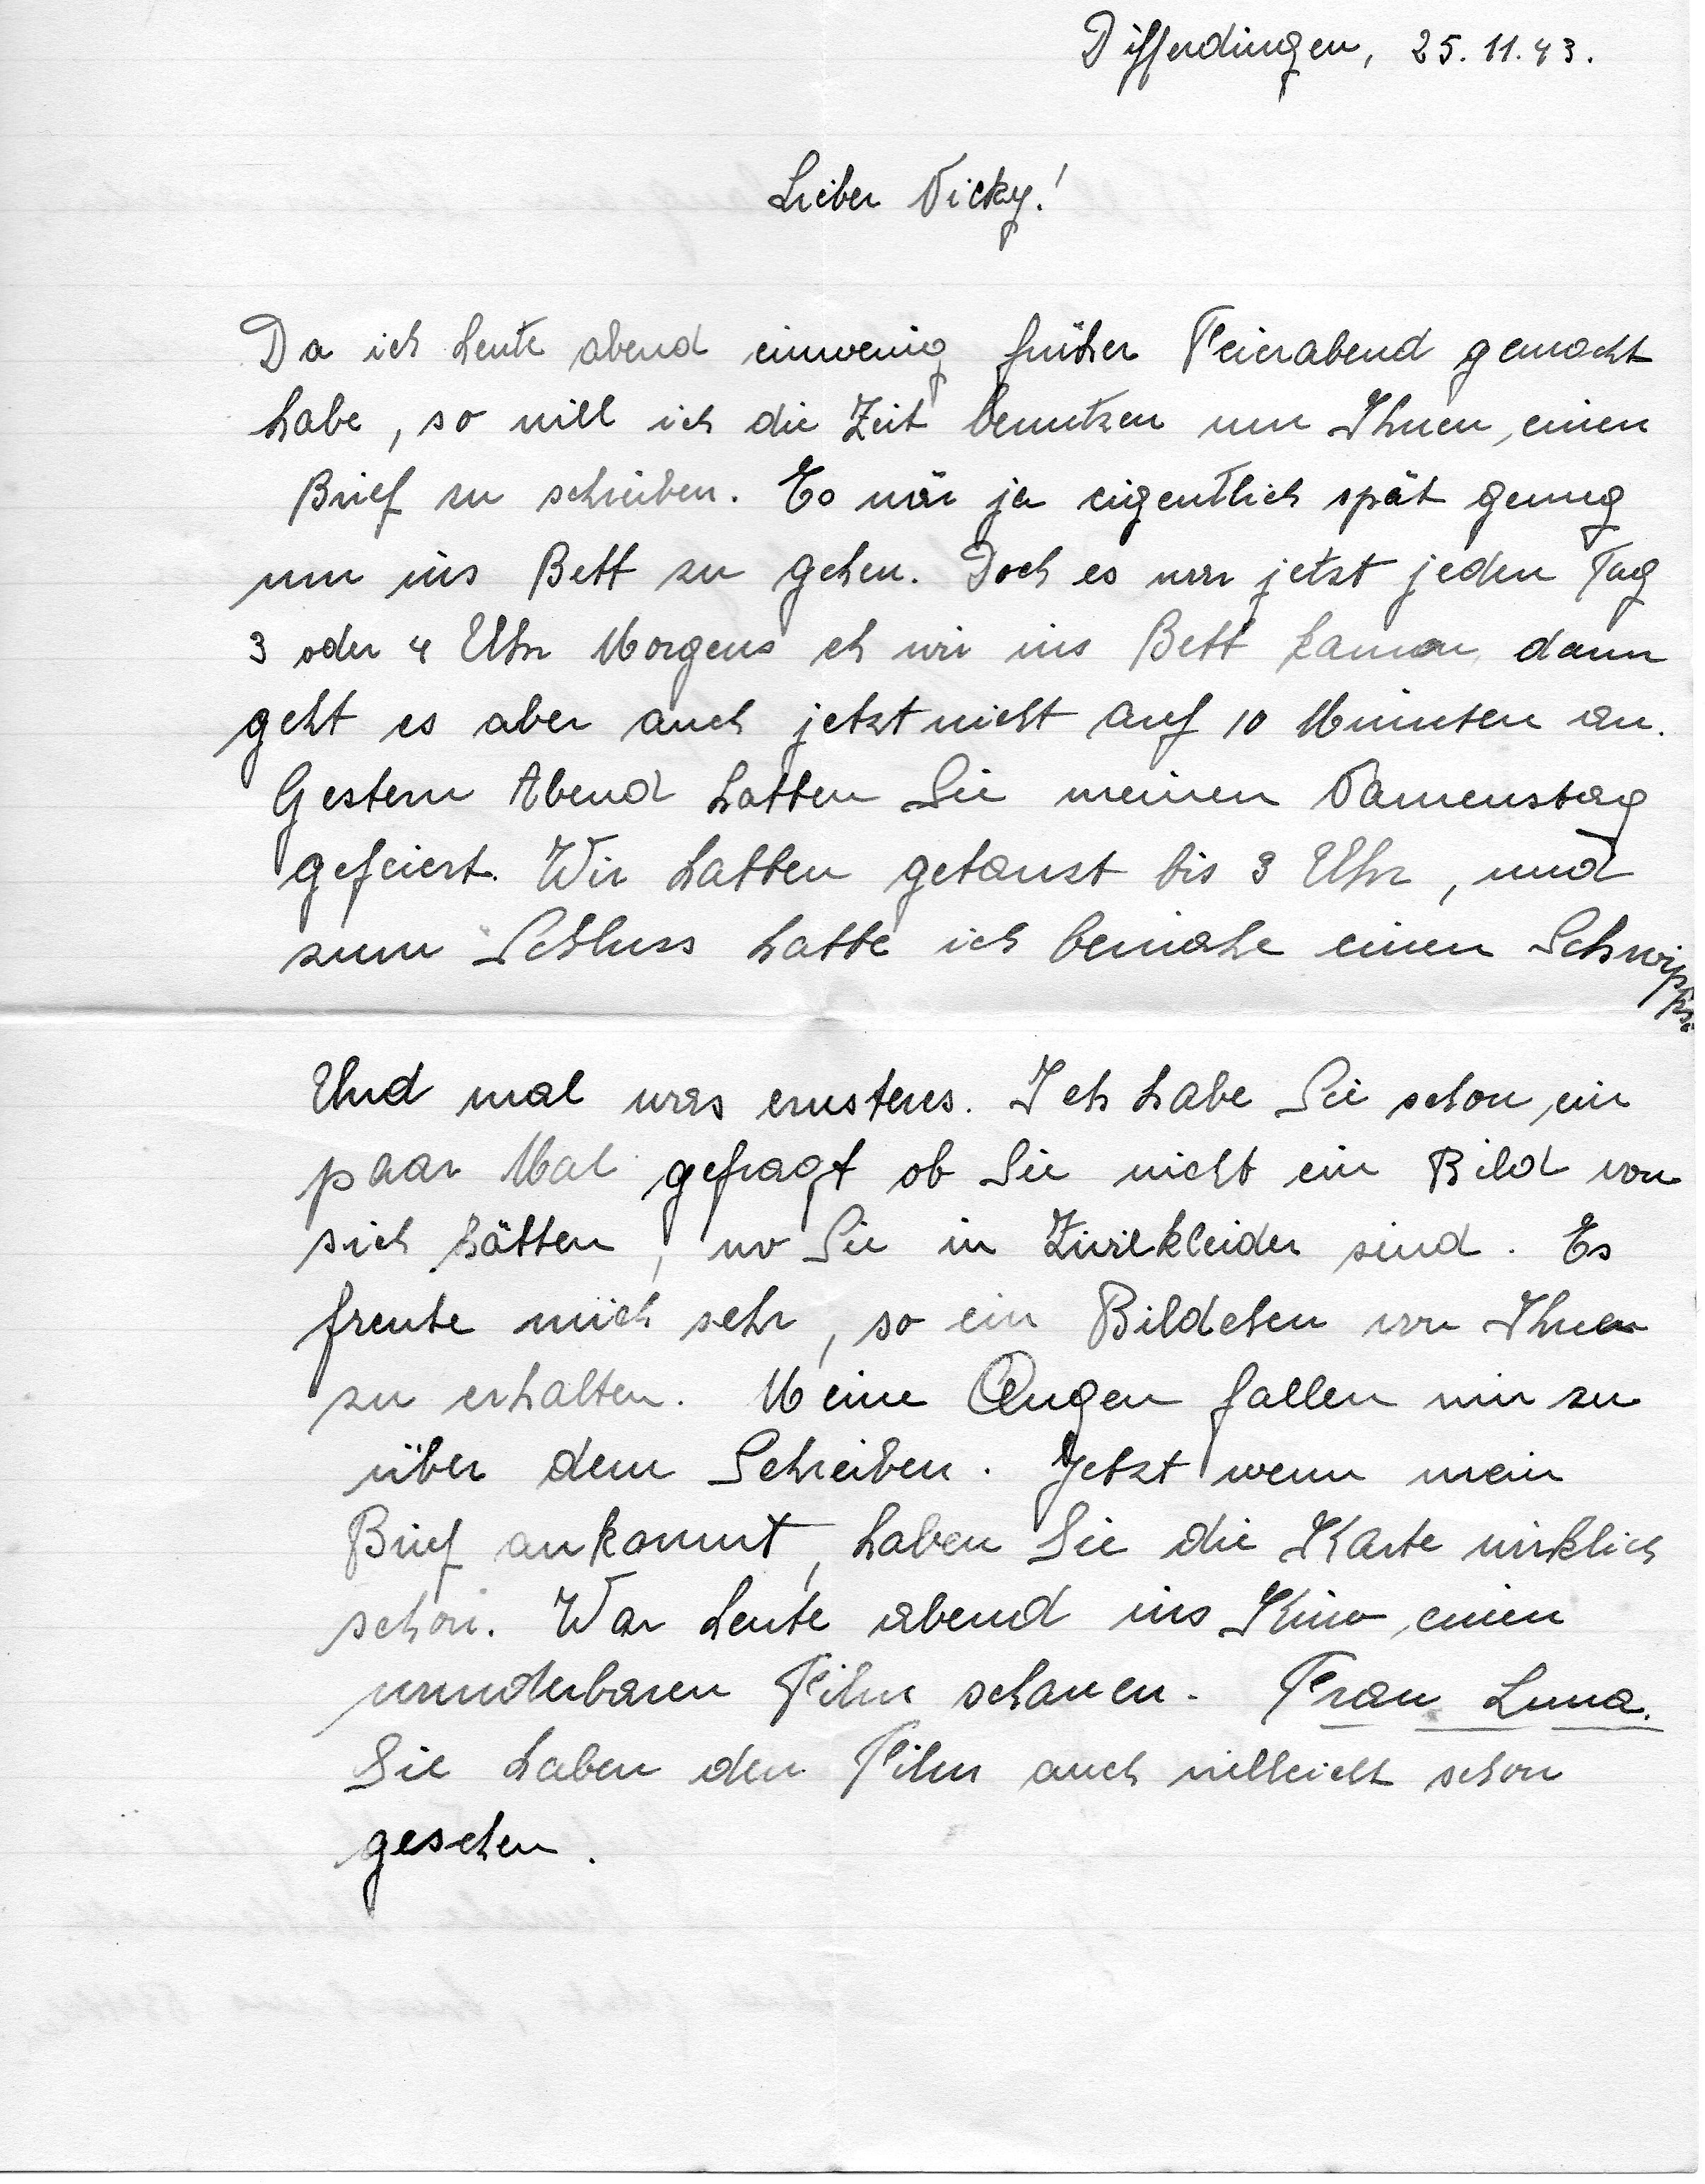 Differdingen, 25.11.43.
Lieber Nicky!
Da ich heute abend einwenig früher Feierabend gemacht
habe, so will ich die Zeit benutzen um Ihnen, einen
Brief zu schreiben. Es wär ja eigentlich spät genug
um ins Bett zu gehen. Doch es war jetzt jeden Tag
3 oder 4 Uhr Morgens eh wir ins Bett kamen, dann
geht es aber auch jetzt nicht auf 10 Minuten an.
Gestern Abend hatten Sie meinen Namenstag
gefeiert. Wir hatten getanzt bis 3 Uhr, und
zum Schluss hatte ich beinahe einen Schwipps.
Und mal was ernsteres. Ich habe Sie schon ein
paar Mal gefragt ob Sie nicht ein Bild von
sich hätten, wo Sie in Zivilkleider sind. Es
freute mich sehr, so ein Bildchen von Ihnen
zu erhalten. Meine Augen fallen mir zu
über dem Schreiben. Jetzt wenn mein
Brief ankommt, haben Sie die Karte wirklich
schon. War heute abend ins Kino, einen
wunderbaren Film schauen. Frau Luna.
Sie haben den Film auch villeicht schon
gesehen.